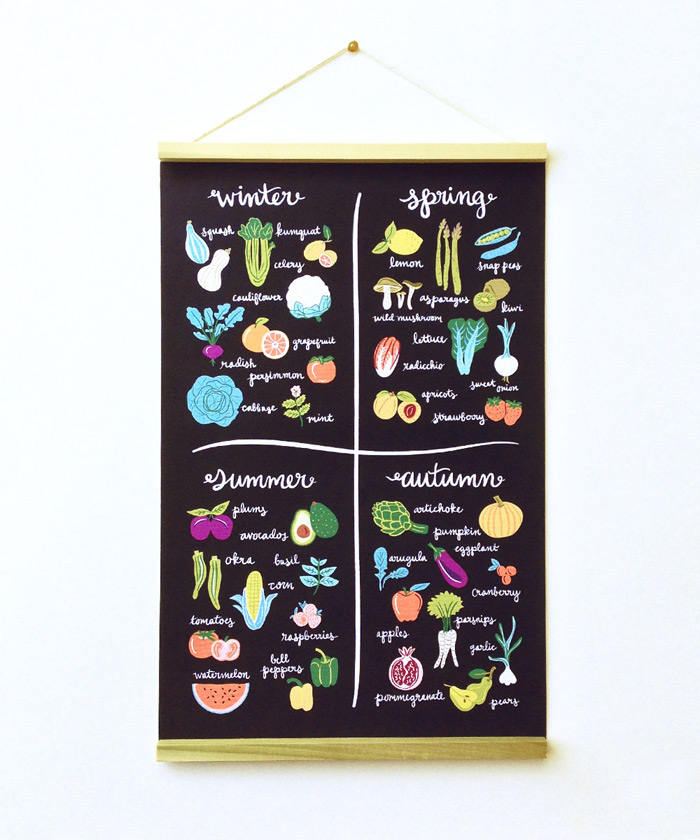 winter
squash
kumquat
celery
cauliflower
grapefruit
radish
persimmon
cabbage
mint
spring
lemon
snap peas
asparagus
kiwi
wild mushroom
lettuce
radicchio
sweet
onion
apricots
strawberry
summer
plums
avocados
okra
basil
corn
tomatoes
raspberries
bell
peppers
watermelon
autumn
artichoke
pumpkin
eggplant
arugula
cranberry
parsnips
apples
garlic
pommegranate
pears